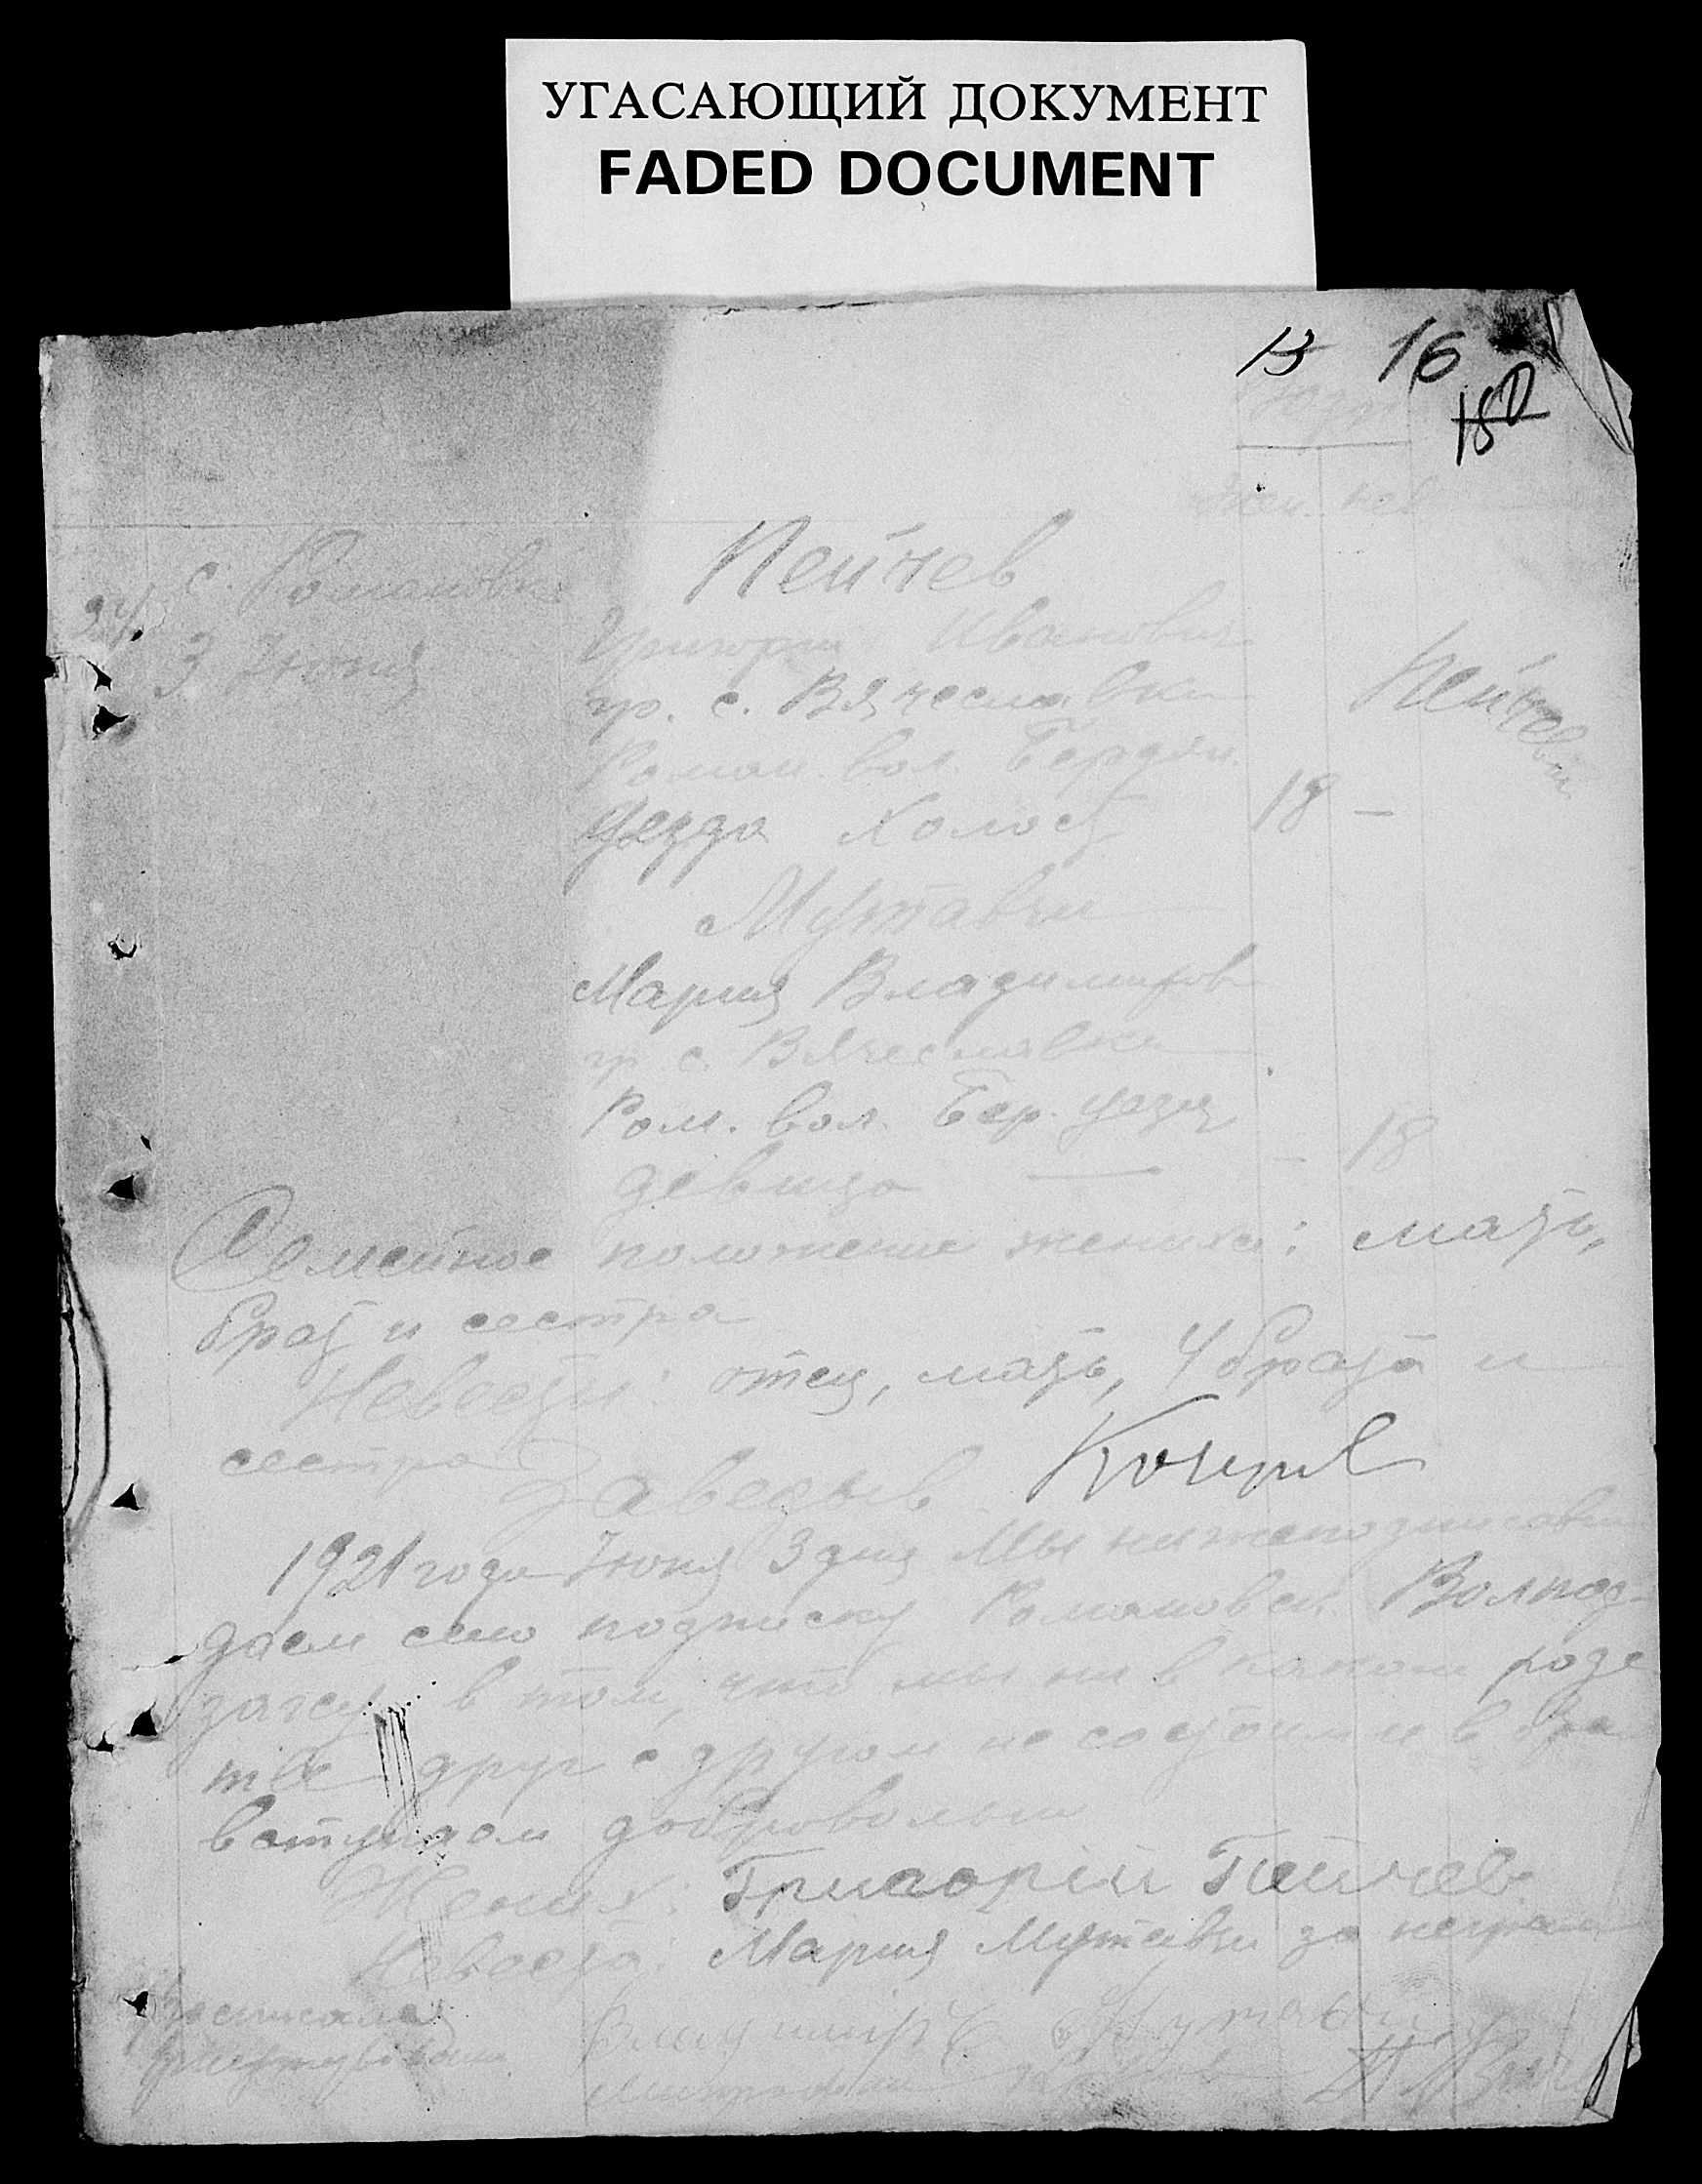 УГАСАЮЩИЙ ДОКУМЕНТ
FADED DOCUMENT
13 16
18
жен. нев
с. Романовка
24.
3 Июня
Пейчев
Григорий Иванович
гр. с. Вячеславки
Роман. вол. Бердян.
уезда холост
18 —
Пейчев
Мутавчи
Мария Владимиров
гр. с. Вячеславки
Ром. вол. Бер. уезд
девица — – 18
Семейное положение жениха: мать,
брат и сестра
Невесты: отец, мать, 4 брата и
сестра
Заведыв.
1921 года Июня 3 дня Мы нижеподписавши
даем сию подписку Романовск. Волпод-
загсу в том, что мы ни в каком родс
тве друг с другом не состоим и в бра
вступаем добровольно
Жених: Григорій Пейчев
Невеста: Мария Мутавчи за неграм
Владимир Мутавчи